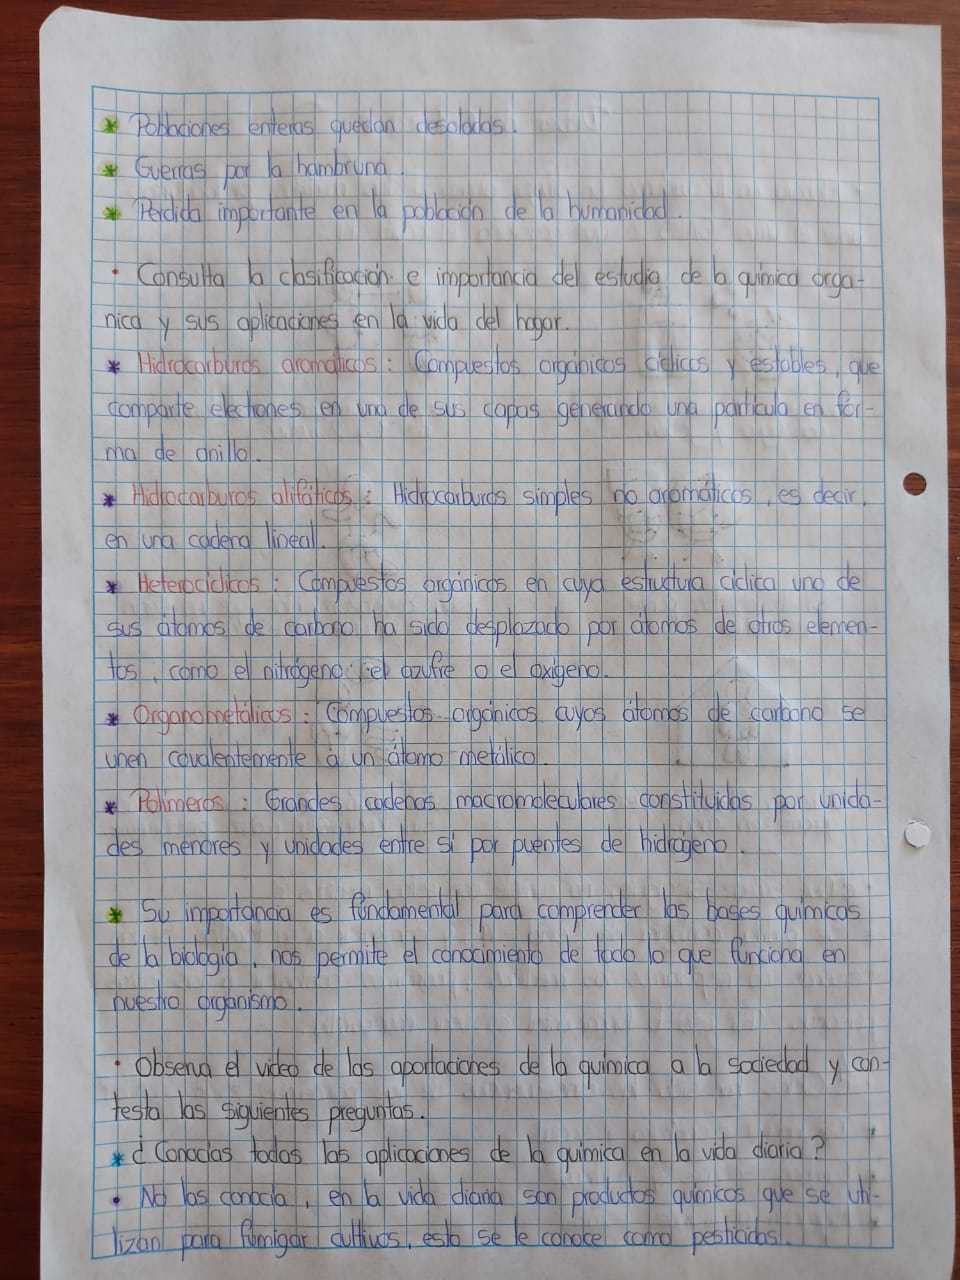 * Poblaciones enteras quedan desoladas.
* Guerras por la hambruna.
* Perdida importante en la población de la humanidad.
· Consulta la clasificación e importancia del estudio de la química orga-
nica y sus aplicaciones en la vida del hogar.
* Hidrocarburos aromáticos: Compuestos orgánicos cíclicos y estables, que
comparte electrones en una de sus capas generando una partícula en for-
ma de anillo.
* Hidrocarburos alifáticos: Hidrocarburos simples no aromáticos, es decir,
en una cadena lineal.
* Heterocíclicos: Compuestos orgánicos en cuya estructura cíclica uno de
sus átomos de carbono ha sido desplazado por átomos de otros elemen-
tos, como el nitrógeno, el azufre o el oxígeno.
* Organometálicos: Compuestos orgánicos cuyos átomos de carbono se
unen covalentemente a un átomo metálico.
* Polímeros: Grandes cadenas macromoleculares constituidas por unida-
des menores y unidades entre sí por puentes de hidrógeno.
* Su importancia es fundamental para comprender las bases químicas
de la biología, nos permite el conocimiento de todo lo que funciona en
nuestro organismo.
· Observa el video de las aportaciones de la química a la sociedad y con-
testa las siguientes preguntas.
* ¿Conocías todas las aplicaciones de la química en la vida diaria?
• No las conocía, en la vida diaria son productos químicos que se uti-
lizan para fumigar cultivos, esto se le conoce como pesticidas.